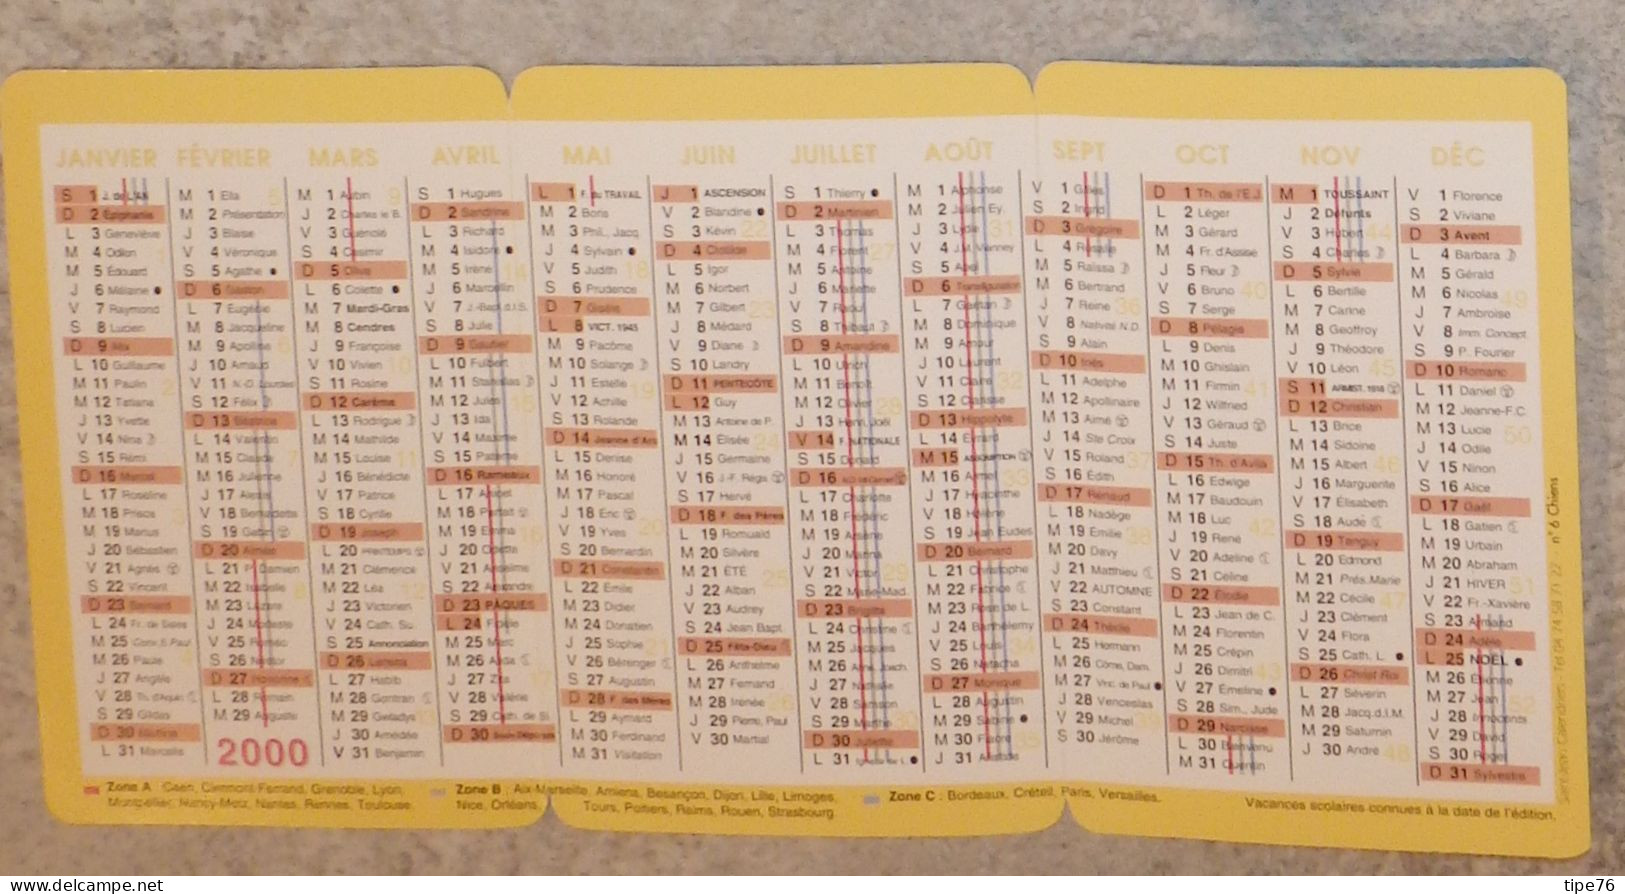 JANVIER FÉVRIER MARS AVRIL MAI JUIN JUILLET AOÛT SEPT OCT NOV DÉC
S 1 J. de L'AN M 1 Ella M 1 Aubin S 1 Hugues L 1 F. du TRAVAIL J 1 ASCENSION S 1 Thierry M 1 Alphonse V 1 Gilles D 1 Th. de l'E.J. M 1 TOUSSAINT V 1 Florence
D 2 Epiphanie M 2 Présentation J 2 Charles le B. D 2 Sandrine M 2 Boris V 2 Blandine D 2 Martinien M 2 Julien Ey. S 2 Ingrid L 2 Léger J 2 Défunts S 2 Viviane
L 3 Geneviève J 3 Blaise V 3 Guénolé L 3 Richard M 3 Phil., Jacq. S 3 Kévin L 3 Thomas J 3 Lydie D 3 Grégoire M 3 Gérard V 3 Hubert D 3 Avent
M 4 Odilon V 4 Véronique S 4 Casimir M 4 Isidore J 4 Sylvain D 4 Clotilde M 4 Florent V 4 J.M. Vianney L 4 Rosalie M 4 Fr. d'Assise S 4 Charles L 4 Barbara
M 5 Édouard S 5 Agathe D 5 Olive M 5 Irène V 5 Judith L 5 Igor M 5 Antoine S 5 Abel M 5 Raïssa J 5 Fleur D 5 Sylvie M 5 Gérald
J 6 Mélaine D 6 Gaston L 6 Colette J 6 Marcellin S 6 Prudence M 6 Norbert J 6 Mariette D 6 Transfiguration M 6 Bertrand V 6 Bruno L 6 Bertille M 6 Nicolas
V 7 Raymond L 7 Eugénie M 7 Mardi-Gras V 7 J.-Bapt. d.l.S. D 7 Gisèle M 7 Gilbert V 7 Raoul L 7 Gaétan J 7 Reine S 7 Serge M 7 Carine J 7 Ambroise
S 8 Lucien M 8 Jacqueline M 8 Cendres S 8 Julie L 8 VICT. 1945 J 8 Médard S 8 Thibaut M 8 Dominique V 8 Nativité N.D. D 8 Pélagie M 8 Geoffroy V 8 Imm. Concept.
D 9 Alix M 9 Apolline J 9 Françoise D 9 Gautier M 9 Pacôme V 9 Diane D 9 Amandine M 9 Amour S 9 Alain L 9 Denis J 9 Théodore S 9 P. Fourier
L 10 Guillaume J 10 Arnaud V 10 Vivien L 10 Fulbert M 10 Solange S 10 Landry L 10 Ulrich J 10 Laurent D 10 Inès M 10 Ghislain V 10 Léon D 10 Romaric
M 11 Paulin V 11 N.-D. Lourdes S 11 Rosine M 11 Stanislas J 11 Estelle D 11 PENTECÔTE M 11 Benoît V 11 Claire L 11 Adelphe M 11 Firmin S 11 ARMIST. 1918 L 11 Daniel
M 12 Tatiana S 12 Félix D 12 Carême M 12 Jules V 12 Achille L 12 Guy M 12 Olivier S 12 Clarisse M 12 Apollinaire J 12 Wilfried D 12 Christian M 12 Jeanne-F.C.
J 13 Yvette D 13 Béatrice L 13 Rodrigue J 13 Ida S 13 Rolande M 13 Antoine de P. J 13 Henri, Joël D 13 Hippolyte M 13 Aimé V 13 Géraud L 13 Brice M 13 Lucie
V 14 Nina L 14 Valentin M 14 Mathilde V 14 Maxime D 14 Jeanne d'Arc M 14 Élisée V 14 F. NATIONALE L 14 Evrard J 14 Ste Croix S 14 Juste M 14 Sidoine J 14 Odile
S 15 Rémi. M 15 Claude M 15 Louise S 15 Paterne L 15 Denise J 15 Germaine S 15 Donald M 15 ASSOMPTION V 15 Roland D 15 Th. d'Avila M 15 Albert V 15 Ninon
D 16 Marcel M 16 Julienne J 16 Bénédicte D 16 Rameaux M 16 Honoré V 16 J.-F. Régis D 16 N.D Mt-Carmel M 16 Armel S 16 Edith L 16 Edwige J 16 Marguerite S 16 Alice
L 17 Roseline J 17 Alexis V 17 Patrice L 17 Anicet M 17 Pascal S 17 Hervé L 17 Charlotte J 17 Hyacinthe D 17 Renaud M 17 Baudouin V 17 Élisabeth D 17 Gaël
M 18 Prisca V 18 Bernadette S 18 Cyrille M 18 Parfait J 18 Éric D 18 F. des Pères M 18 Frédéric V 18 Hélène L 18 Nadège M 18 Luc S 18 Aude L 18 Gatien
M 19 Marius S 19 Gabin D 19 Joseph M 19 Emma V 19 Yves L 19 Romuald M 19 Arsène S 19 Jean Eudes M 19 Émilie J 19 René D 19 Tanguy M 19 Urbain
J 20 Sébastien D 20 Aimée L 20 PRINTEMPS J 20 Odette S 20 Bernardin M 20 Silvère J 20 Marina D 20 Bernard M 20 Davy V 20 Adeline L 20 Edmond M 20 Abraham
V 21 Agnès L 21 P. Damien M 21 Clémence V 21 Anselme D 21 Constantin M 21 ÉTÉ V 21 Victor L 21 Christophe J 21 Matthieu S 21 Céline M 21 Prés. Marie J 21 HIVER
S 22 Vincent M 22 Isabelle M 22 Léa S 22 Alexandre L 22 Emile J 22 Alban S 22 Marie-Mad. M 22 Fabrice V 22 AUTOMNE D 22 Élodie M 22 Cécile V 22 Fr.-Xavière
D 23 Bernard M 23 Lazare J 23 Victorien D 23 PÂQUES M 23 Didier V 23 Audrey D 23 Brigitte M 23 Rose de L. S 23 Constant L 23 Jean de C. J 23 Clément S 23 Armand
L 24 Fr. de Sales J 24 Modeste V 24 Cath. Su. L 24 Fidèle M 24 Donatien S 24 Jean Bapt. L 24 Christine J 24 Barthélemy D 24 Thècle M 24 Florentin V 24 Flora D 24 Adèle
M 25 Conv. S. Paul V 25 Roméo S 25 Annonciation M 25 Marc J 25 Sophie D 25 Fête-Dieu M 25 Jacques V 25 Louis L 25 Hermann M 25 Crépin S 25 Cath. L. L 25 NOËL
M 26 Paule S 26 Nestor D 26 Larissa M 26 Alida V 26 Bérenger L 26 Anthelme M 26 Anne, Joach. S 26 Natacha M 26 Côme, Dam. J 26 Dimitri D 26 Christ Roi M 26 Étienne
J 27 Angèle D 27 Honorine L 27 Habib J 27 Zita S 27 Augustin M 27 Fernand J 27 Nathalie D 27 Monique M 27 Vinc. de Paul V 27 Émeline L 27 Séverin M 27 Jean
V 28 Th. d'Aquin L 28 Romain M 28 Gontran V 28 Valérie D 28 F. des Mères M 28 Irénée V 28 Samson L 28 Augustin J 28 Venceslas S 28 Sim., Jude M 28 Jacq.d.l.M. J 28 Innocents
S 29 Gildas M 29 Auguste M 29 Gwladys S 29 Cath. de Si. L 29 Aymard J 29 Pierre, Paul S 29 Marthe M 29 Sabine V 29 Michel D 29 Narcisse M 29 Saturnin V 29 David
D 30 Martine J 30 Amédée D 30 Souv. Déportés M 30 Ferdinand V 30 Martial D 30 Juliette M 30 Fiacre S 30 Jérôme L 30 Bienvenu J 30 André S 30 Roger
L 31 Marcelle 2000 V 31 Benjamin M 31 Visitation L 31 Ignace de L. J 31 Aristide M 31 Quentin D 31 Sylvestre
Zone A : Caen, Clermont-Ferrand, Grenoble, Lyon, Zone B : Aix-Marseille, Amiens, Besançon, Dijon, Lille, Limoges, Zone C : Bordeaux, Créteil, Paris, Versailles.
Montpellier, Nancy-Metz, Nantes, Rennes, Toulouse. Nice, Orléans, Tours, Poitiers, Reims, Rouen, Strasbourg.
Vacances scolaires connues à la date de l'édition.
Calendriers - Tel 04 74 58 71 22 n° 6 Chiens
delcampe.net
tipe76